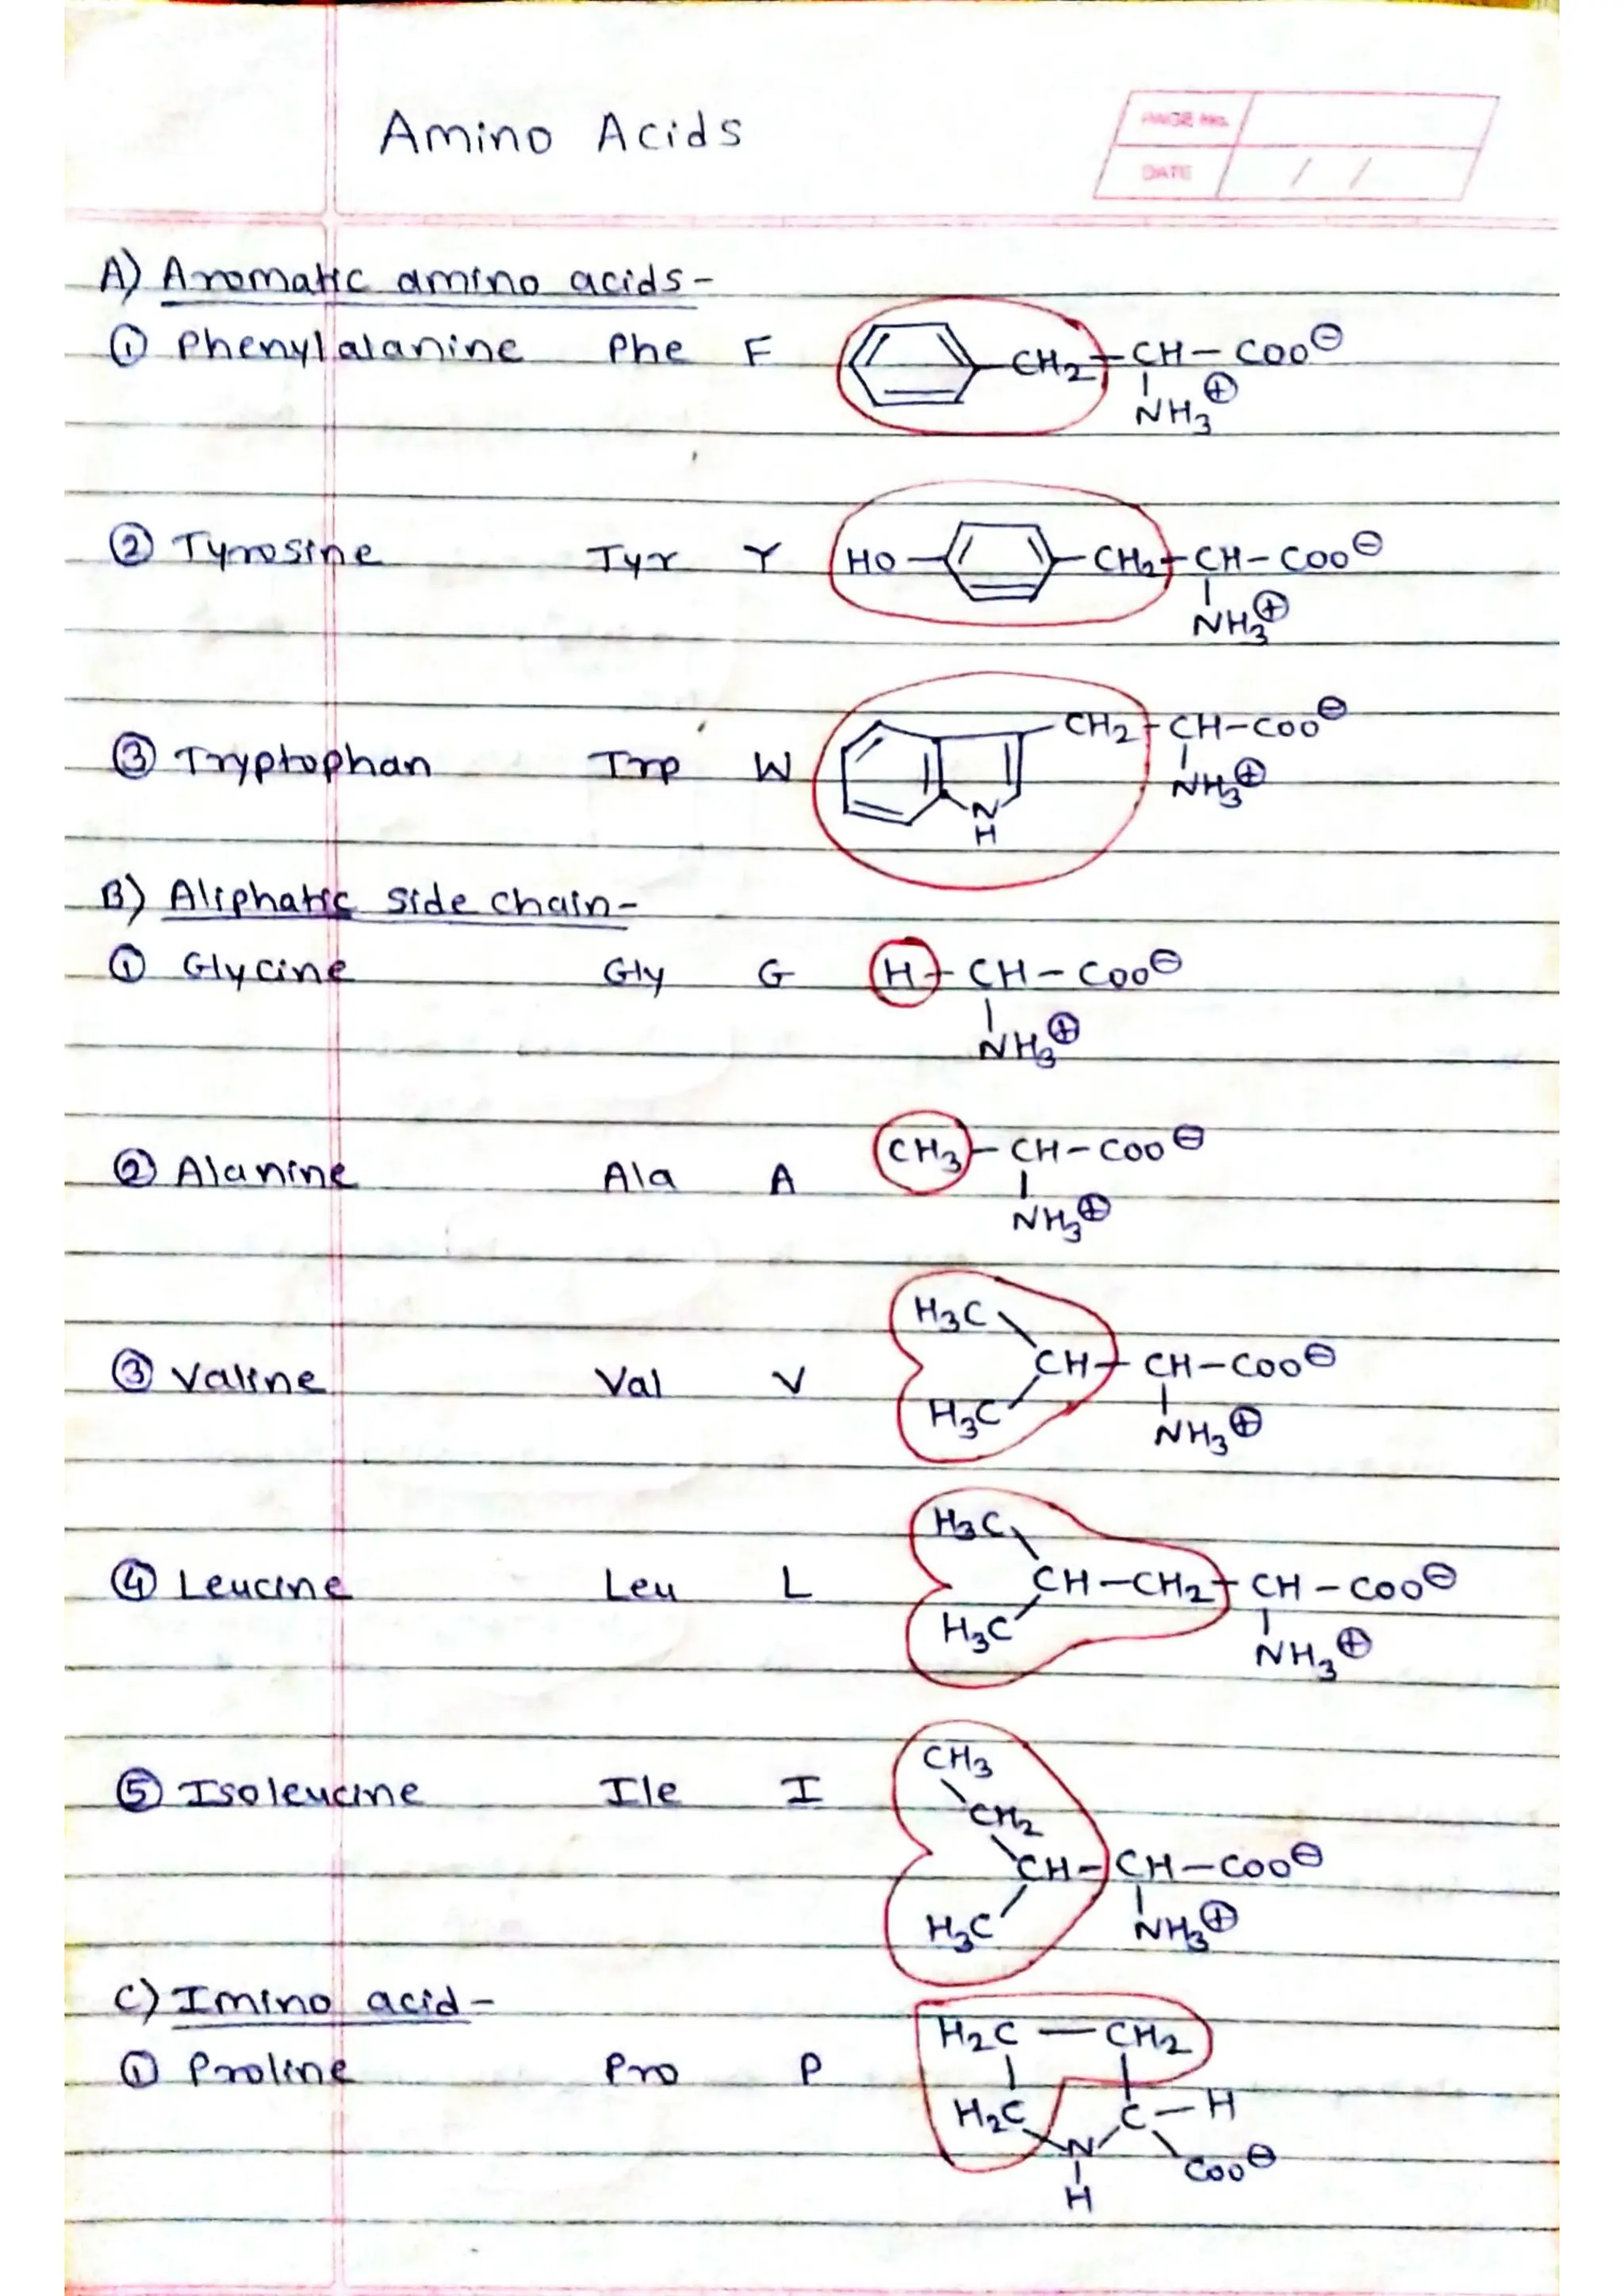 Amino Acids
PAGE No.
DATE / /
A) Aromatic amino acids-
① Phenylalanine Phe F CH₂-CH-COO⊖
NH₃⊕
② Tyrosine Tyr Y HO CH₂-CH-COO⊖
NH₃⊕
③ Tryptophan Trp W CH₂-CH-COO⊖
NH₃⊕
N
H
B) Aliphatic side chain-
① Glycine Gly G H-CH-COO⊖
NH₃⊕
② Alanine Ala A CH₃-CH-COO⊖
NH₃⊕
H₃C
③ Valine Val V CH-CH-COO⊖
H₃C NH₃⊕
H₃C
④ Leucine Leu L CH-CH₂-CH-COO⊖
H₃C NH₃⊕
CH₃
⑤ Isoleucine Ile I CH₂
CH-CH-COO⊖
H₃C NH₃⊕
C) Imino acid-
H₂C-CH₂
① Proline Pro P
H₂C C-H
N COO⊖
H